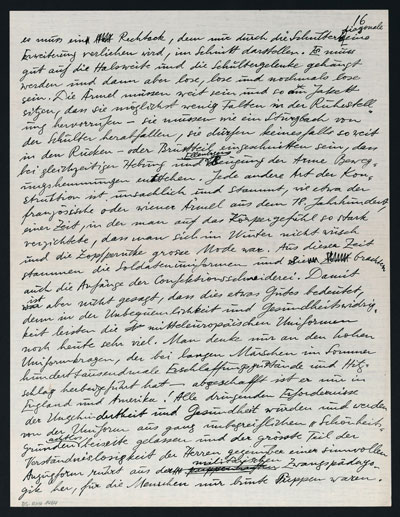 16
es muss ein Rechteck, dem nur durch die Schultern eine diagonale
Erweiterung verliehen wird, im Schnitt darstellen. Er muss
gut auf die Halsweite und die Schultergelenke gehängt
werden und dann aber lose, lose und nochmals lose
sein. Die Ärmel müssen weit sein und so am Jakett
sitzen, dass sie möglichst wenig Falten in der Ruhestell-
ung hervorrufen – sie müssen wie ein Sturzbach von
der Schulter herabfallen, sie dürfen keinesfalls so weit
in den Rücken- oder Brustteil eingeschnitten sein, dass
bei gleichzeitiger Hebung und Beugung der Arme Beweg-
ungshemmungen entstehen. Jede andere Art der Kon-
struktion ist unsachlich und stammt, wie etwa der
französische oder wiener Ärmel aus dem 18. Jahrhundert,
einer Zeit, in der man auf das Körpergefühl so stark
verzichtete, dass man sich im Winter nicht wusch
und die Zopfperücke grosse Mode war. Aus dieser Zeit
stammen die Soldatenuniformen und brachten
auch die Anfänge der Confektionsschneiderei. Damit
ist aber nicht gesagt, dass dies etwas Gutes bedeutet,
denn in der Unbequemlichkeit und Gesundheitswidrig-
keit leisten die mitteleuropäischen Uniformen
noch heute sehr viel. Man denke nur an den hohen
Uniformkragen, der bei langen Märschen im Sommer
hunderttausendmale Erschlaffungszustände und Hitz-
schlag herbeigeführt hat – abgeschafft ist er nur in
England und Amerika! Alle dringenden Erfordernisse
der Ungehindertheit und Gesundheit wurden und werden
von der Uniform aus ganz unbegreiflichen „Schönheits-
gründen" beiseite gelassen und der grösste Teil der
Verständnislosigkeit der Herren gegenüber einer sinnvollen
Anzugform rührt aus der militärischen Zwangspädago-
gik her, für die Menschen nur bunte Puppen waren.